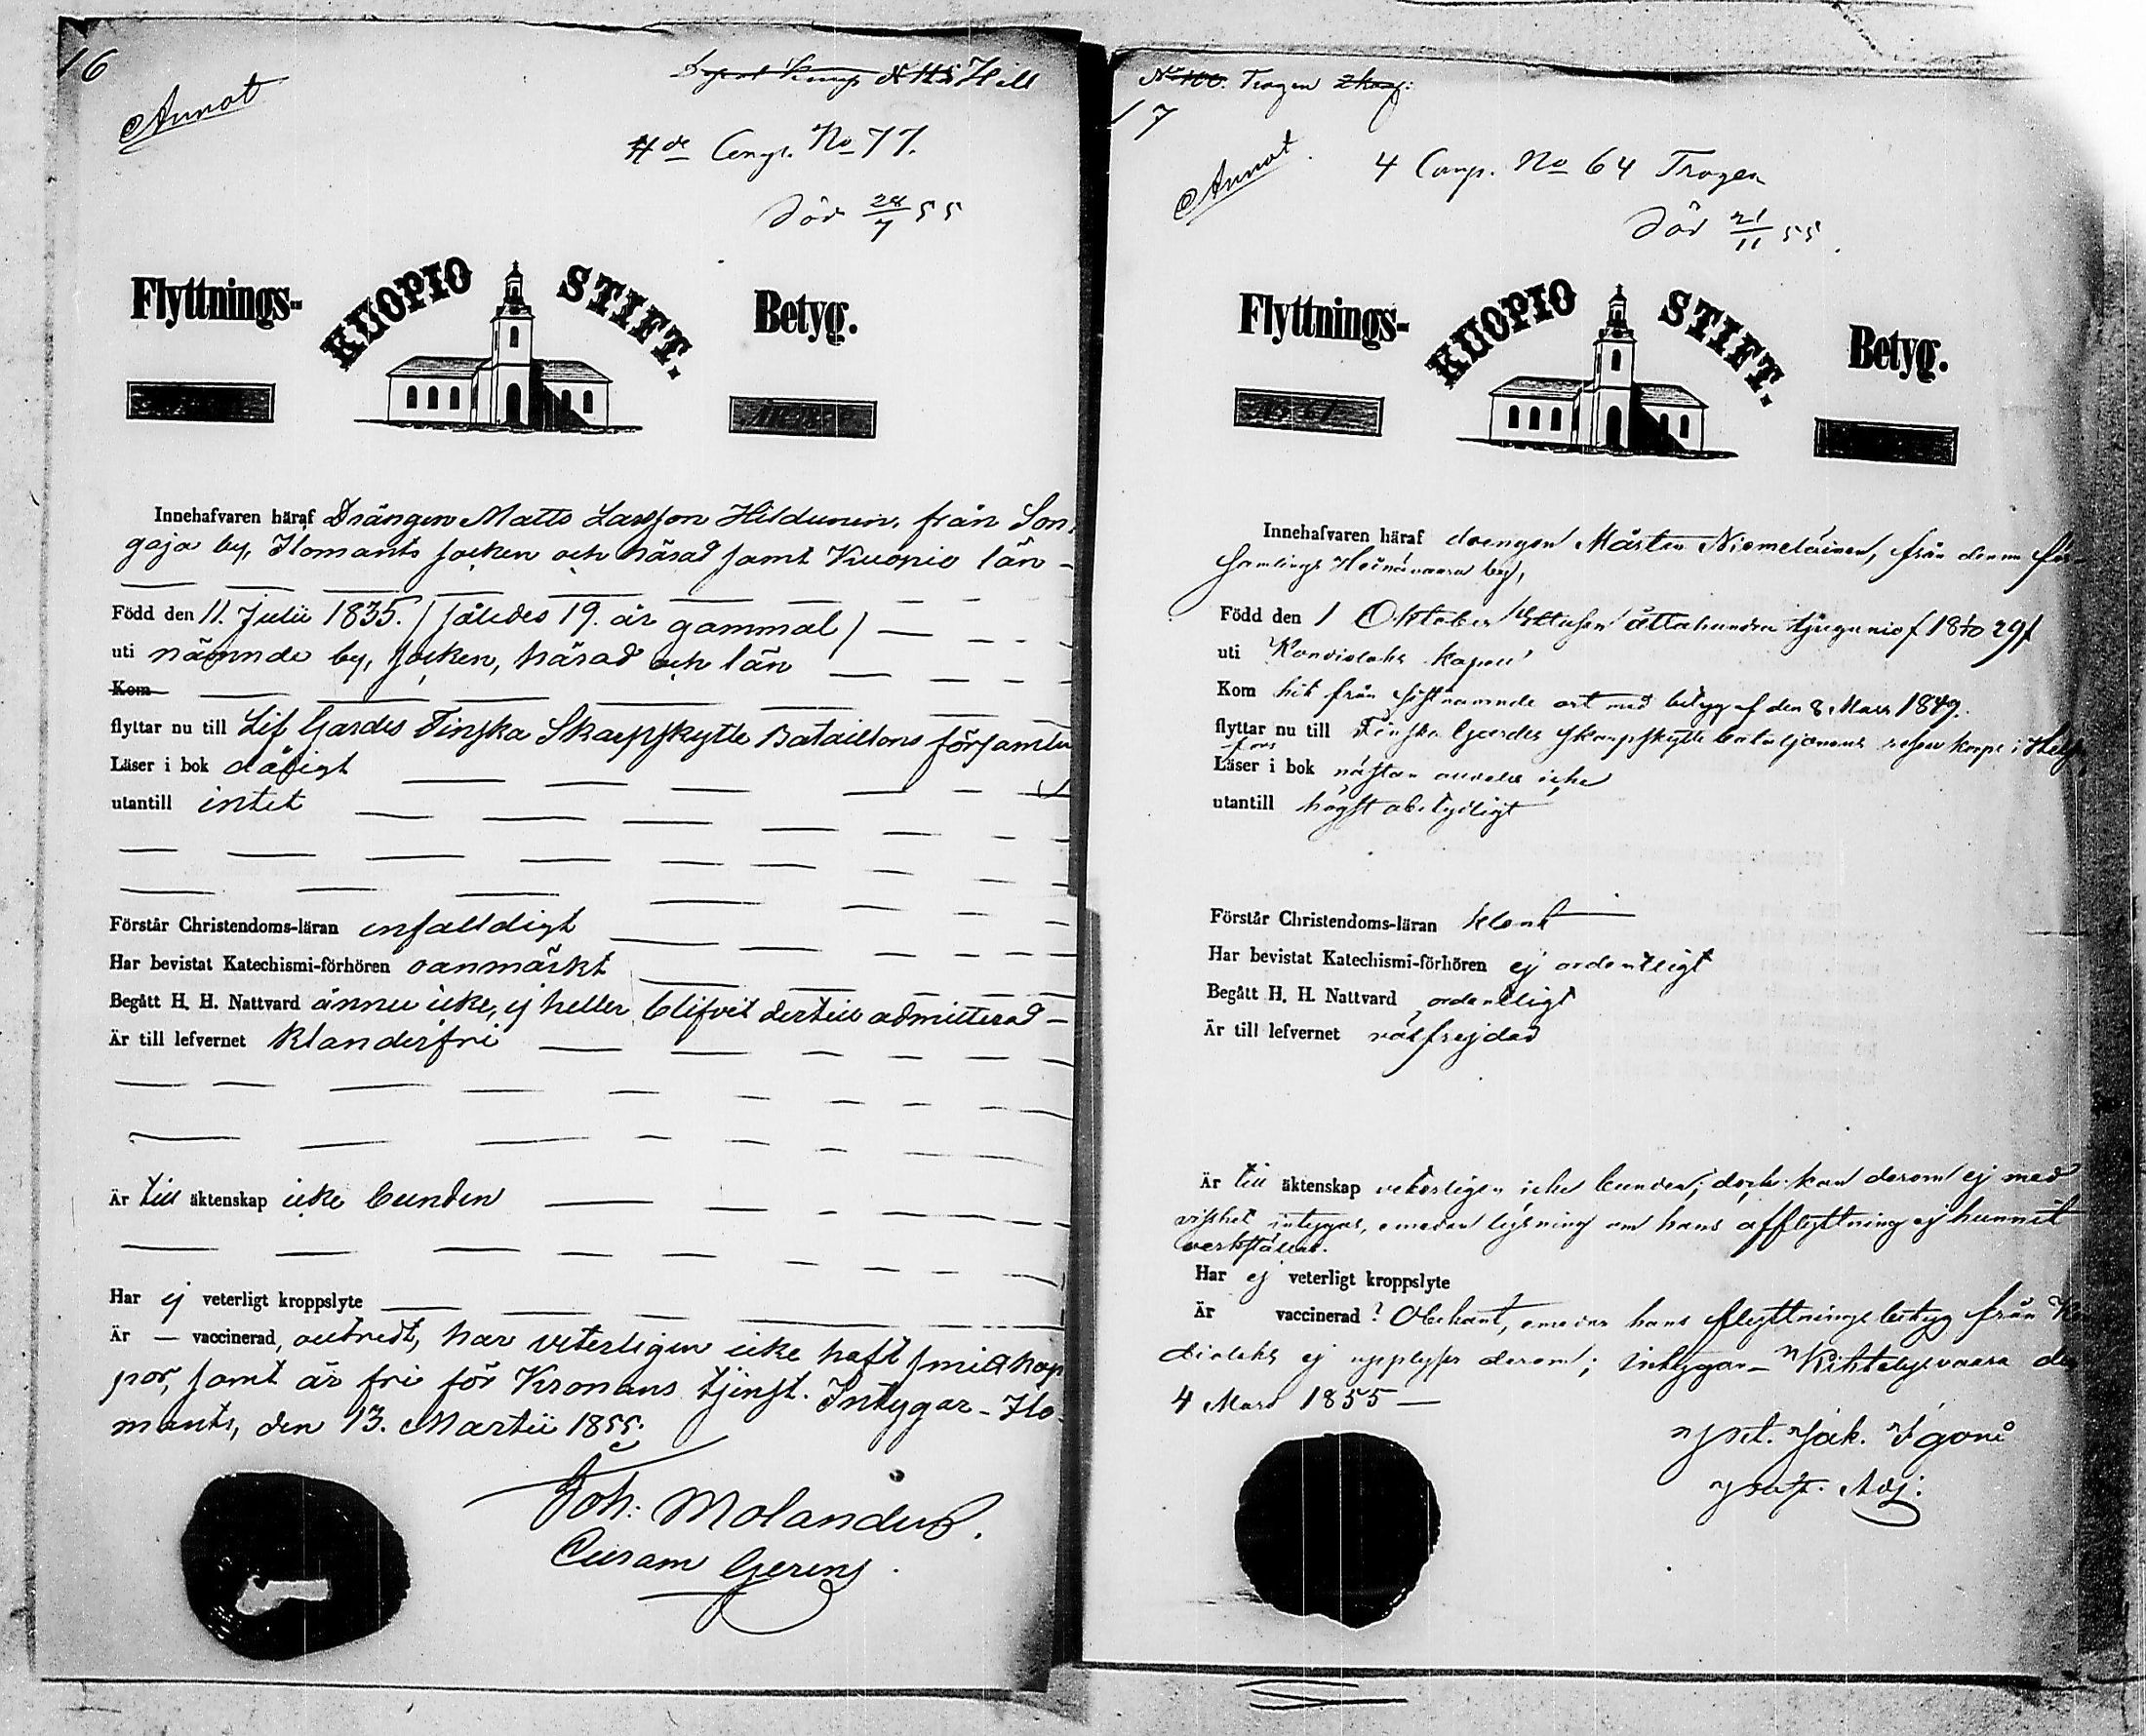 16
Annot
Hill
4de Comp. No 77.
Död 28/7 55
Flyttnings- KUOPIO STIFT. Betyg.
Innehafvaren häraf Drängen Matts Larsson Hildunen, från Son-
gaja by, Ilomants socken och härad samt Kuopio län
Född den 11. Julii 1835. (således 19. år gammal)
uti nämnde by, socken, härad och län
Kom
flyttar nu till Lif Gardes Finska Skarpskytte Bataillons församlin
Läser i bok dåligt
utantill intet
Förstår Christendoms-läran enfalldigt
Har bevistat Katechismi-förhören oanmärkt
Begått H. H. Nattvard ännu icke, ej heller blifvit dertill admitterad
Är till lefvernet klanderfri
Är till äktenskap icke bunden
Har ej veterligt kroppslyte
Är vaccinerad, outredt, har veterligen icke haft smittkop
por, samt är fri för Kronans tjenst. Intygar - Ilo-
mants, den 13. Martii 1855.
Joh: Molander.
Curam Gerens.
No 100. Trogen 2 komp:
17
Annot.
4 Comp. No 64 Trogen
Död 21/11 55.
Flyttnings- KUOPIO STIFT. Betyg.
No 61
Innehafvaren häraf drengen Mårten Niemeläinen, från denna för-
samlings Heinävaara by,
Född den 1 Oktober Ettusen åttahundra tjugunio (1829)
uti Kondiolaks kapell
Kom hit från sistnämnde ort med betyg af den 8 Mars 1849.
flyttar nu till Finska Gardes Skarpskytte bataljonens reserv korps i Helsing
fors
Läser i bok nästan audeles icke
utantill högst obetydligt
Förstår Christendoms-läran klent
Har bevistat Katechismi-förhören ej ordentligt
Begått H. H. Nattvard ordentligt
Är till lefvernet välfrejdad
Är till äktenskap veterligen icke bunden; dock kan derom ej med
visshet intygas, emedan lysning om hans afflyttning ej hunnit
verkställas.
Har ej veterligt kroppslyte
Är vaccinerad? Obekant, emedan hans flyttningsbetyg från Kon
diolaks ej upplyser derom; intygar - Kihtelysvaara den
4 Mars 1855
Jak.
Adj: